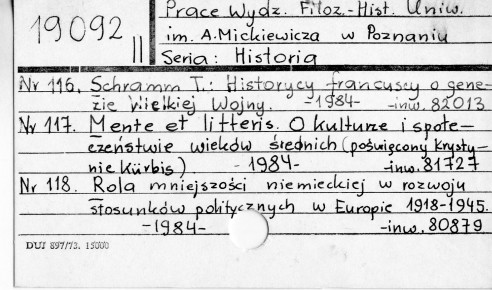 19092
II
Prace Wydz. Filoz.-Hist. Uniw.
im. A. Mickiewicza w Poznaniu
Seria: Historia
Nr 116. Schramm T.: Historycy francuscy o gene-
zie Wielkiej Wojny. -1984- -inw. 82013
Nr 117. Mente et litteris. O kulturze i społe-
czeństwie wieków średnich (poświęcony Krysty-
nie Kürbis) - 1984- -inw. 81727
Nr 118. Rola mniejszości niemieckiej w rozwoju
stosunków politycznych w Europie 1918-1945.
-1984- -inw. 80879
DUJ 897/73. 15000